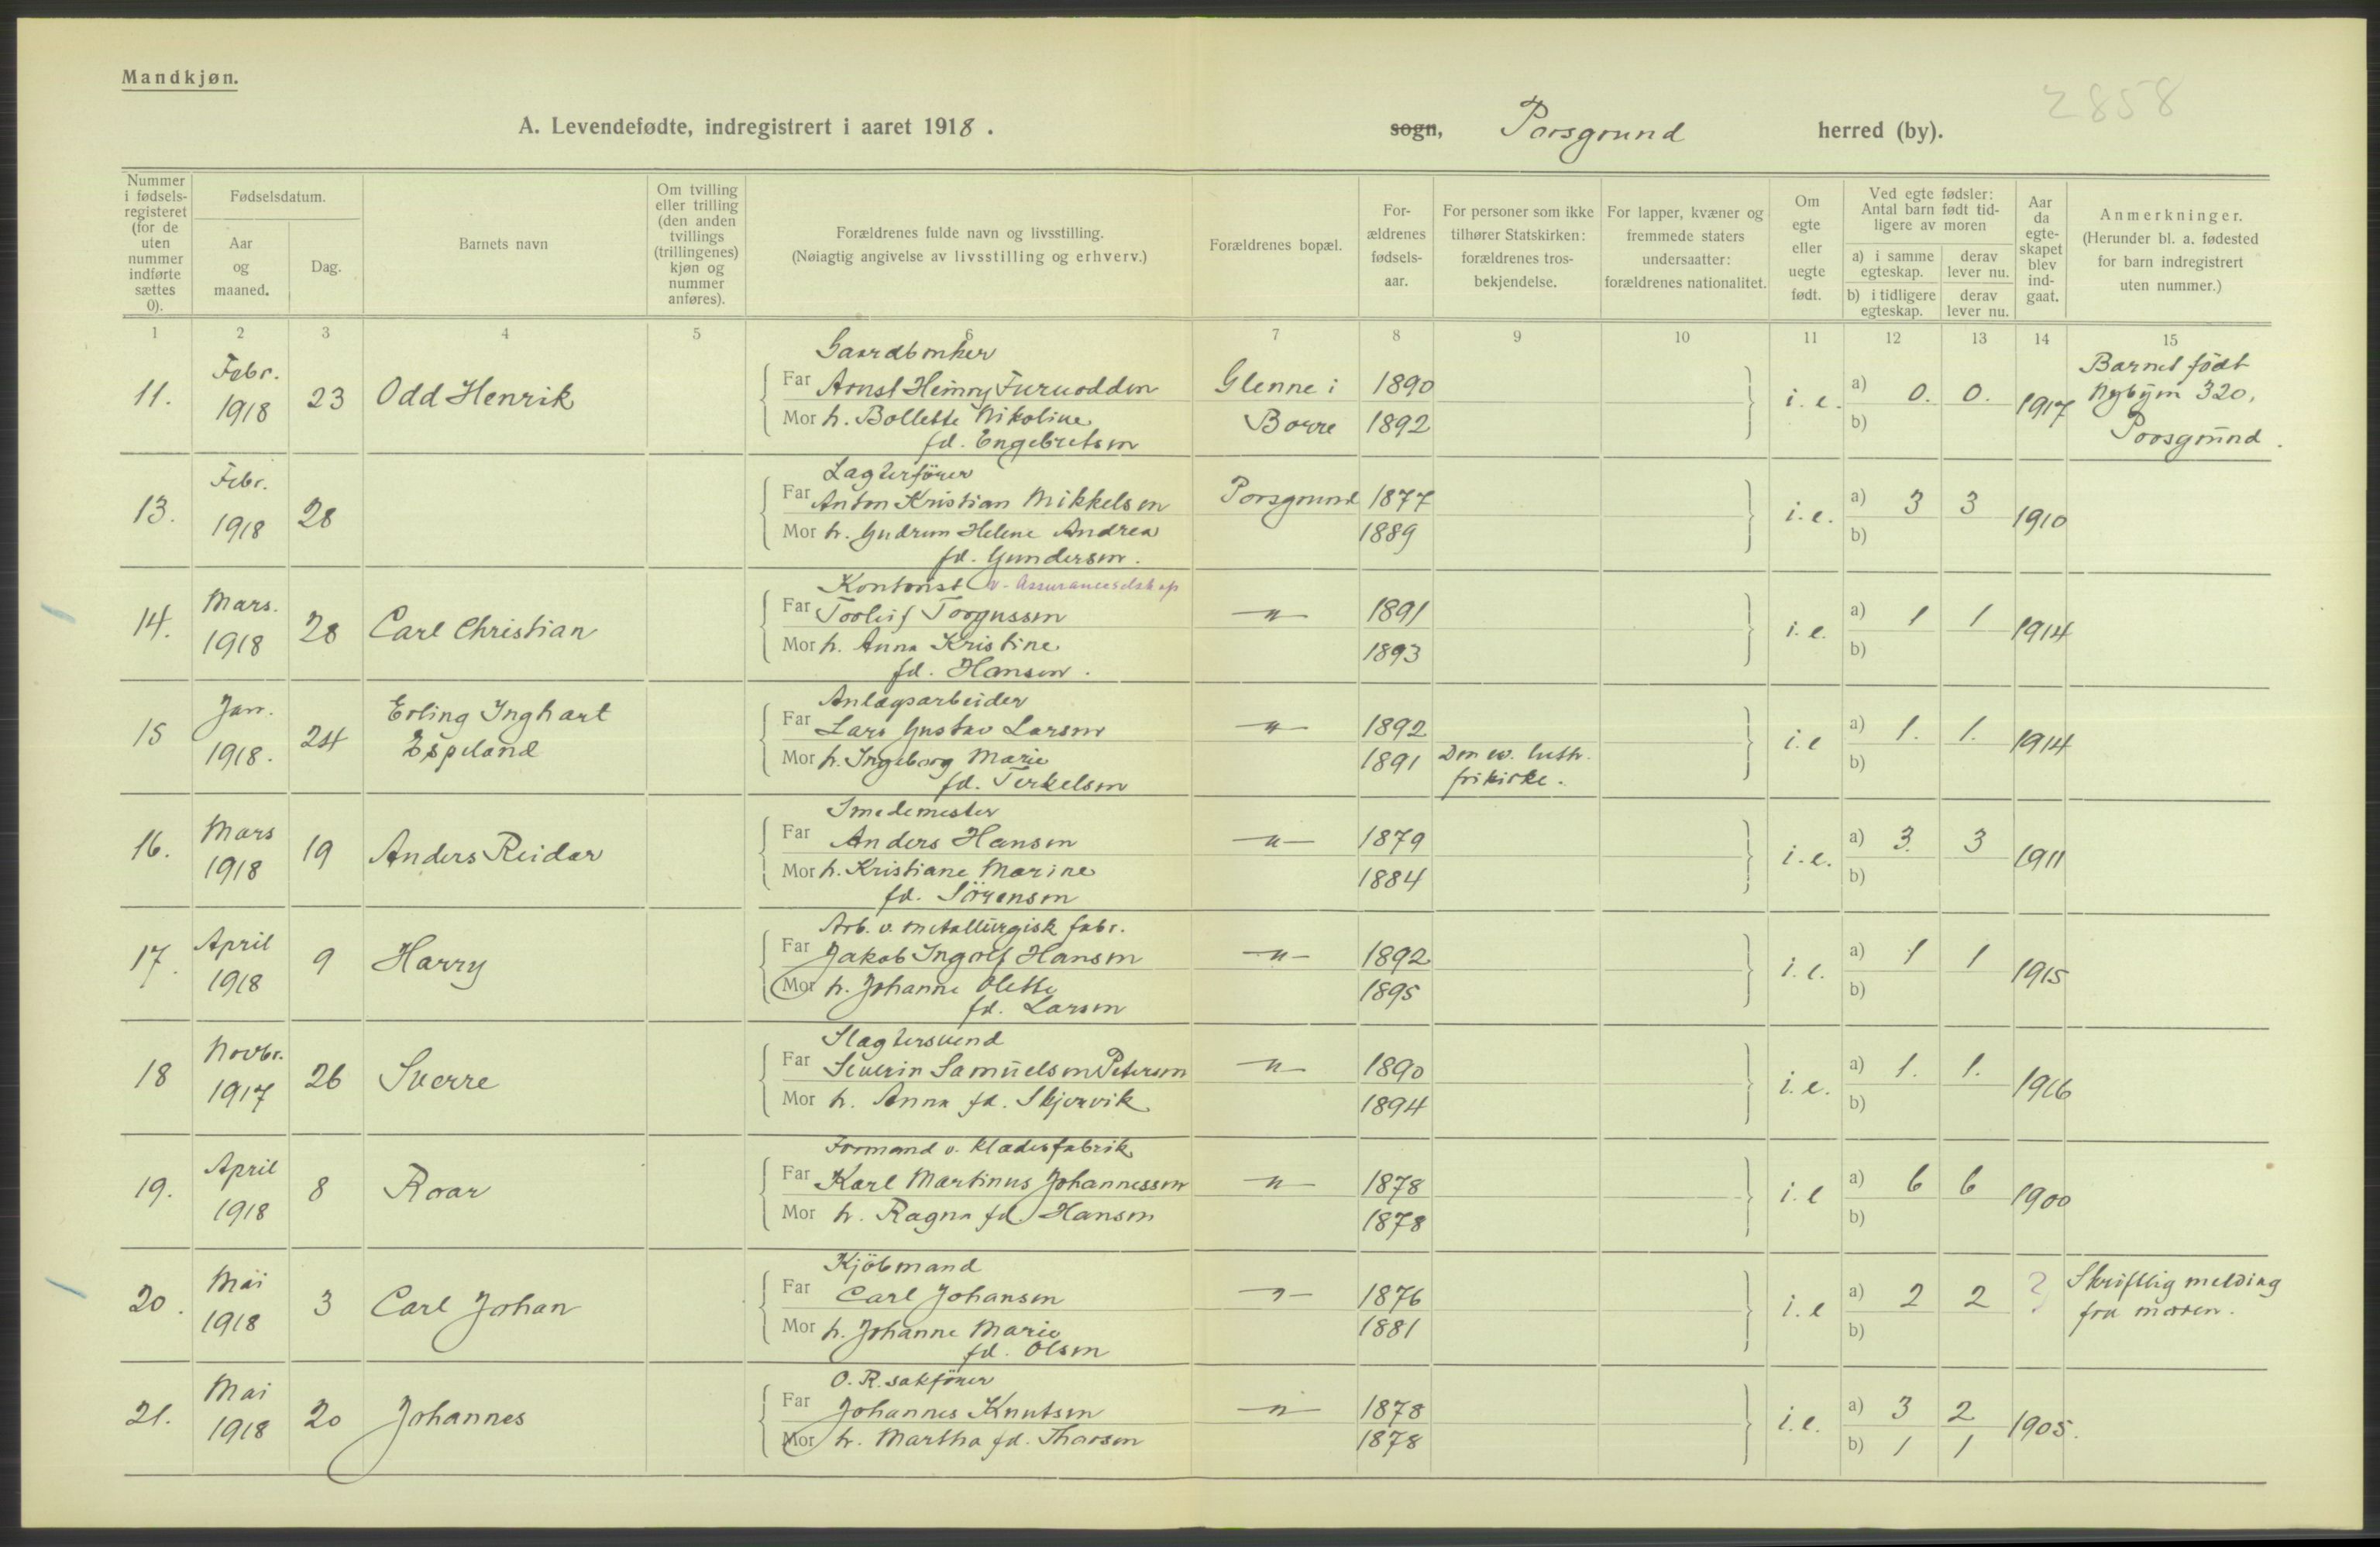 Mandkjøn.
2858
A. Levendefødte, indregistrert i aaret 1918.
sogn, Porsgrund herred (by).
Nummer i fødsels-registeret (for de uten nummer indførte sættes 0).
Fødselsdatum.
Aar og maaned.
Dag.
Barnets navn
Om tvilling eller trilling (den anden tvillings (trillingenes) kjøn og nummer anføres).
Forældrenes fulde navn og livsstilling.
(Nøiagtig angivelse av livsstilling og erhverv.)
Forældrenes bopæl.
For-ældrenes fødsels-aar.
For personer som ikke tilhører Statskirken: forældrenes tros-bekjendelse.
For lapper, kvæner og fremmede staters undersaatter: forældrenes nationalitet.
Om egte eller uegte født.
Ved egte fødsler: Antal barn født tid-ligere av moren
a) i samme egteskap. derav lever nu.
b) i tidligere egteskap. derav lever nu.
Aar da egte-skapet blev ind-gaat.
Anmerkninger.
(Herunder bl. a. fødested for barn indregistrert uten nummer.)
1 2 3 4 5 6 7 8 9 10 11 12 13 14 15
Gaardbruker
11. Febr. 1918 23 Odd Henrik
Far Arnst Henry Furuodden Glenne i Borre 1890
Mor h. Bollette Nikoline 1892
fd. Engebretsen
i. e. a) 0. 0. b) 1917
Barnet födt Nybyen 320, Porsgrund.
Lagterförer
13. Febr. 1918 28
Far Anton Kristian Mikkelsen Porsgrund 1877
Mor h. Gudrun Helene Andrea 1889
fd. Gundersen.
i. e. a) 3 3 b) 1910
Kontorist v. Assuranceselskap
14. Mars. 1918 28 Carl Christian
Far Torleif Torgussen -"- 1891
Mor h. Anna Kristine 1893
fd. Hansen.
i. e. a) 1 1 b) 1914
Anlægsarbeider
15 Jan. 1918. 24 Erling Inghart Espeland
Far Lars Gustav Larsen -"- 1892
Mor h. Ingeborg Marie 1891 Den ev. luth. frikirke.
fd. Terkelsen
i. e a) 1. 1. b) 1914
Smedemester
16. Mars 1918 19 Anders Reidar
Far Anders Hansen -"- 1879
Mor h. Kristiane Marine 1884
fd. Sörensen
i. e. a) 3. 3 b) 1911
Arb. v. metallurgisk fabr.
17. April 1918 9 Harry
Far Jakob Ingolf Hansen -"- 1892
Mor h. Johanne Olette 1895
fd. Larsen
i. e. a) 1 1 b) 1915
Slagtersvend
18 Novbr. 1917 26 Sverre
Far Severin Samuelsen Petersen -"- 1890
Mor h. Anna fd. Skjervik 1894
i. e. a) 1. 1. b) 1916
Formand v. klædesfabrik
19. April 1918 8 Roar
Far Karl Martinus Johannessen -"- 1878
Mor h. Ragna fd. Hansen 1878
i. e a) 6 6 b) 1900
Kjöbmand
20. Mai 1918 3 Carl Johan
Far Carl Johansen -"- 1876
Mor h. Johanne Marie 1881
fd. Olsen
i. e a) 2 2 b) ?
Skriftlig melding fra moren.
O. R. sakförer
21. Mai 1918 20 Johannes
Far Johannes Knutsen -"- 1878
Mor h. Martha fd. Thorsen 1878
i. e. a) 3 2 b) 1 1 1905.